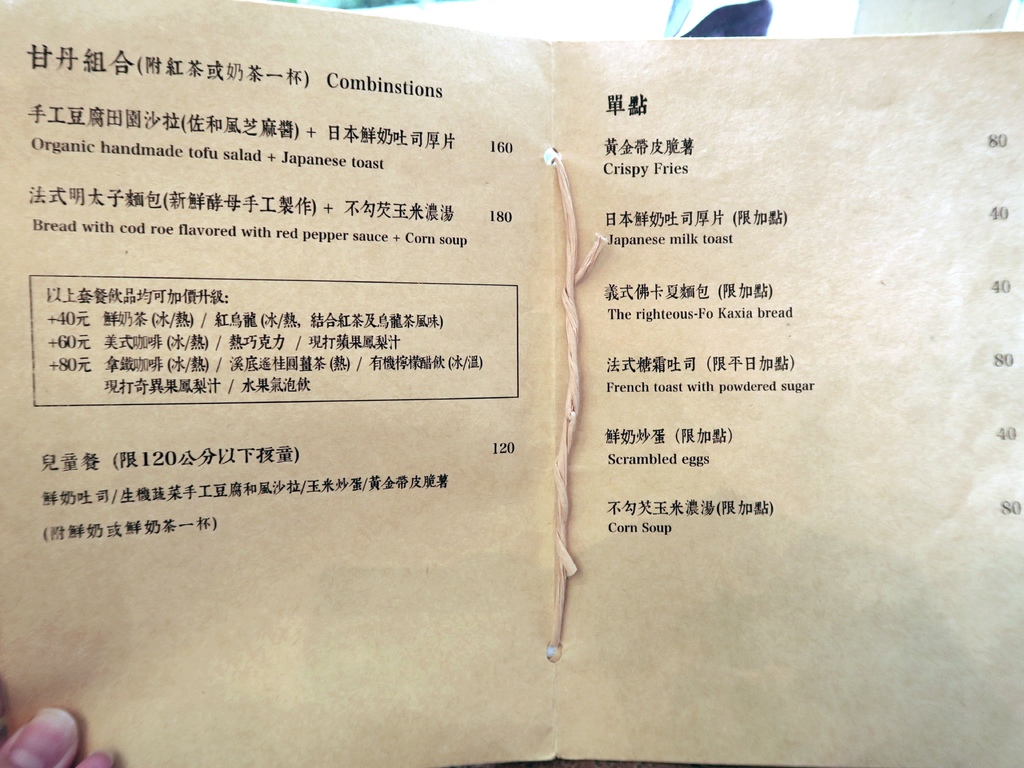 甘丹組合(附紅茶或奶茶一杯) Combinstions
手工豆腐田園沙拉(佐和風芝麻醬) + 日本鮮奶吐司厚片 160
Organic handmade tofu salad + Japanese toast
法式明太子麵包(新鮮酵母手工製作) + 不勾芡玉米濃湯 180
Bread with cod roe flavored with red pepper sauce + Corn soup
以上套餐飲品均可加價升級:
+40元 鮮奶茶 (冰/熱) / 紅烏龍 (冰/熱, 結合紅茶及烏龍茶風味)
+60元 美式咖啡 (冰/熱) / 熱巧克力 / 現打蘋果鳳梨汁
+80元 拿鐵咖啡 (冰/熱) / 溪底遙桂圓薑茶 (熱) / 有機檸檬醋飲 (冰/溫)
現打奇異果鳳梨汁 / 水果氣泡飲
兒童餐 (限120公分以下孩童) 120
鮮奶吐司/生機蔬菜手工豆腐和風沙拉/玉米炒蛋/黃金帶皮脆薯
(附鮮奶或鮮奶茶一杯)
單點
黃金帶皮脆薯 80
Crispy Fries
日本鮮奶吐司厚片 (限加點) 40
Japanese milk toast
義式佛卡夏麵包 (限加點) 40
The righteous-Fo Kaxia bread
法式糖霜吐司 (限平日加點) 80
French toast with powdered sugar
鮮奶炒蛋 (限加點) 40
Scrambled eggs
不勾芡玉米濃湯(限加點) 80
Corn Soup